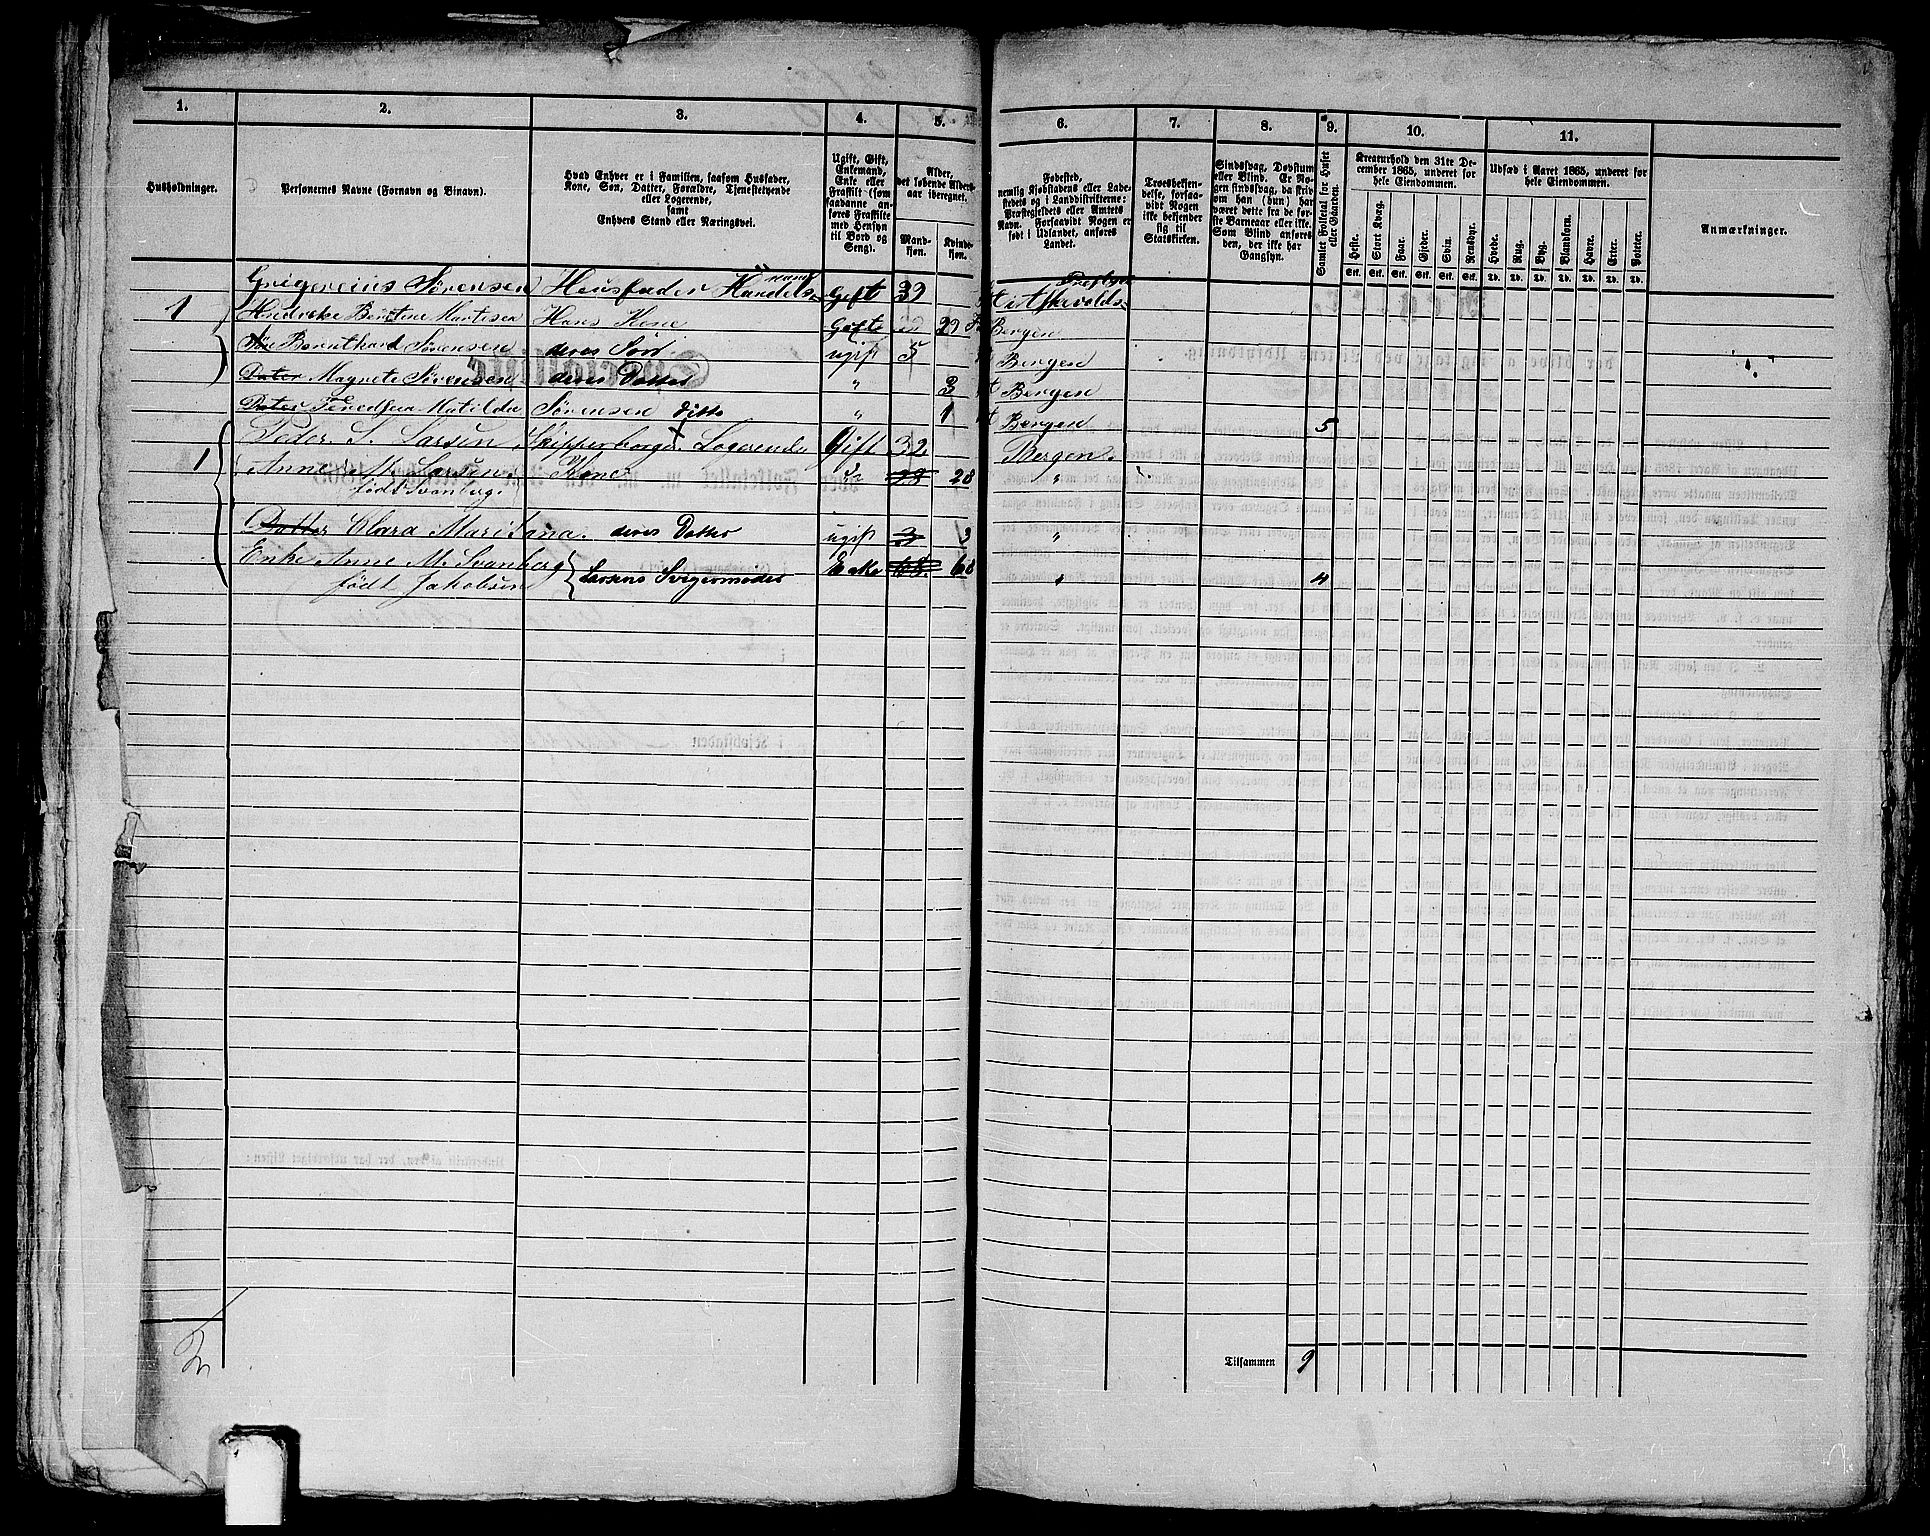 1. 2. 3. 4. 5. 6. 7. 8. 9. 10. 11.
Husholdninger.
Personernes Navne (Fornavn og Binavn).
Hvad Enhver er i Familien, saasom Husfader,
Kone, Søn, Datter, Forældre, Tjenestetyende
eller Logerende,
samt
Enhvers Stand eller Næringsvei.
Ugift, Gift,
Enkemand,
Enke eller
Fraskilt (som
saadanne an-
føres Fraskilte
med Hensyn
til Bord og
Seng).
Alder,
det løbende Alders-
aar iberegnet.
Mand-
kjøn.
Kvinde-
kjøn.
Fødested,
nemlig Kjøbstadens eller Lade-
stedets og i Landdistrikterne:
Præstegjeldets eller Amtets
Navn. Forsaavidt Nogen er
født i Udlandet, anføres
Landet.
Troesbekjen-
delse, forsaa-
vidt Nogen
ikke bekjender
sig til
Statskirken.
Sindssvag, Døvstum
eller Blind. Er No-
gen sindssvag, da skriv
om han (hun) har
været dette fra de før-
ste Barneaar eller ikke.
Som Blind anføres
den, der ikke har
Gangsyn.
Samlet Folketal for Huset
eller Gaarden.
Kreaturhold den 31te De-
cember 1865, anført for
hele Eiendommen.
Heste. Stort Kvæg. Faar. Gjeder. Svin. Rensdyr.
Stk. Stk. Stk. Stk. Stk. Stk.
Udsæd i Aaret 1865, anført for
hele Eiendommen.
Hvede. Rug. Byg. Blandkorn. Havre. Erter. Poteter.
Td. Td. Td. Td. Td. Td. Td.
Anmærkninger.
Grigereius Sørensen Heusfader Handels mand Gift 39 Askevolds Prestegj
1 Hindrike Berntine Martesen Hans Kone Gifte 29 Bergen
Søn Bernthard Sørensen deres Søn ugift 5 Bergen
Dater Magrete Sørensen deres Datter " 3 Bergen
Dater Matilda Sørensen ditto " 1 Bergen 5
Peder S. Larsen Skipperborger Logerende Gift 32 Bergen
1 Anne M. Larsen Kone 28 28 "
født Svanberg
Datter Clara Mari Lana. deres Datter ugift 3 3 "
Enke Anne M. Svanberg Larsens Svigermoder Enke 68 68 " 4
født Jakobsen
Tilsammen 9
2